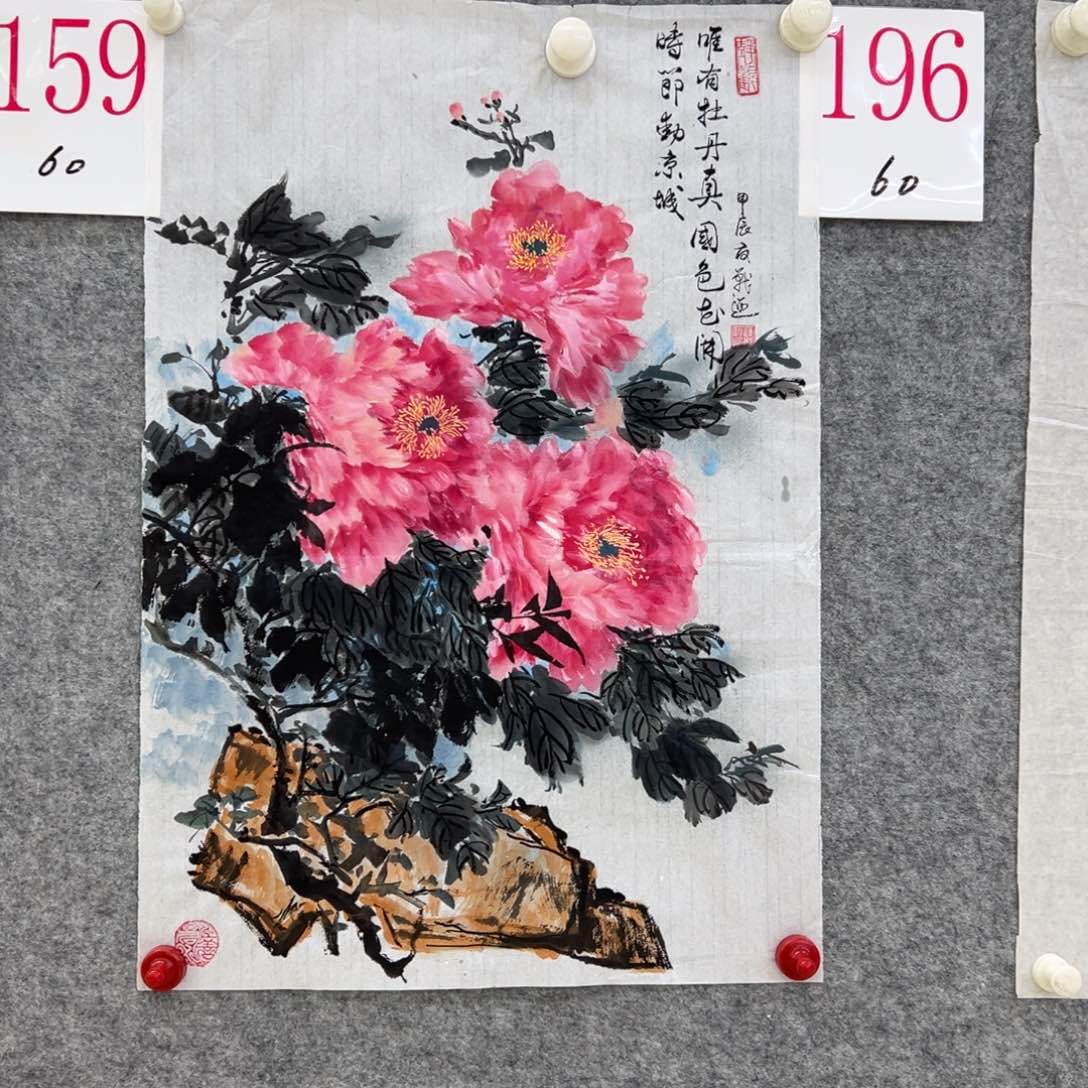 159
60
196
60
唯有牡丹真國色花開
時節動京城
甲辰夜戰迺